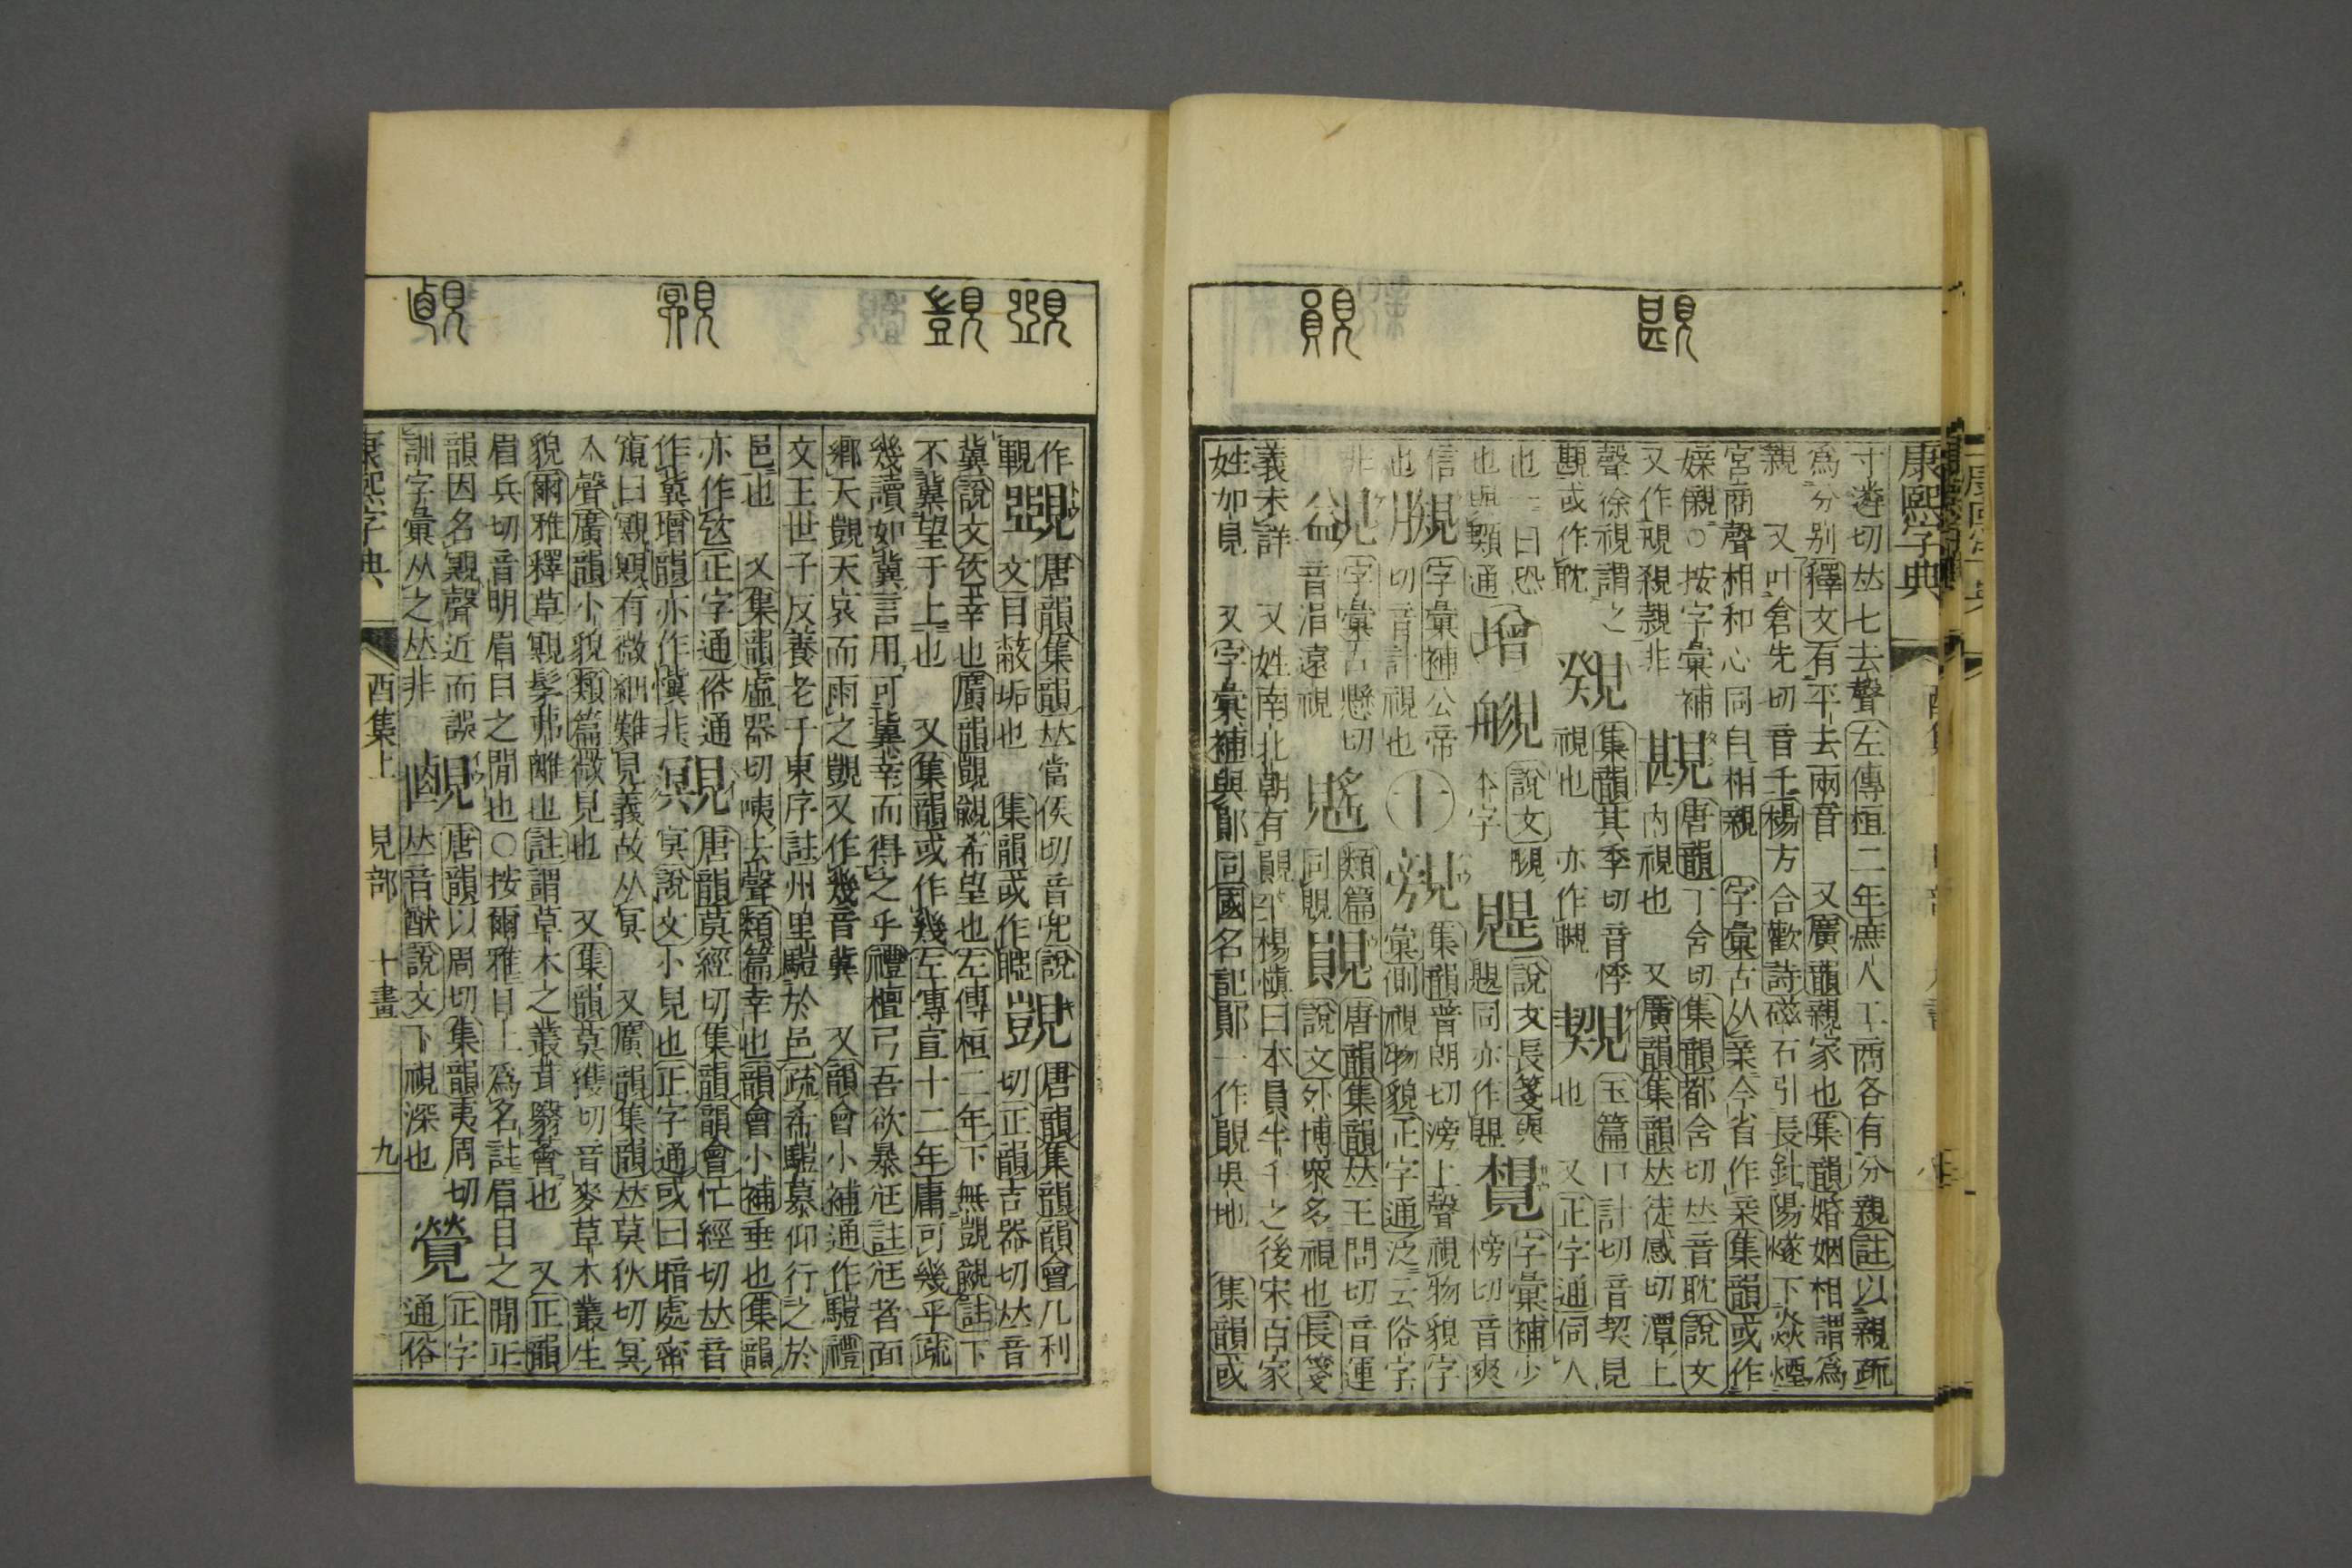 康熙字典
寸遴切𠀤七去聲左傳桓二年庶人工商各有分親註以親疏
爲分別釋文有平去兩音 又廣韻親家也集韻婚姻相謂爲
親 又叶倉先切音千楊方合歡詩磁石引長針陽燧下焱煙
宮商聲相和心同自相親 字彙古从業今省作亲集韻或作
媇儭○按字彙補
覘
唐韻丁含切集韻都含切𠀤音耽說文
又作𧠟䙿親非
內視也 又廣韻集韻𠀤徒感切潭上
聲徐視謂之
覣或作眈
集韻其季切音悸
視也 亦作䁒
玉篇口計切音契見
也 又正字通伺人
也一曰恐
也與類通
增
說文
本字
說文長箋與
題同亦作題
字彙補少
榜切音爽
信
也
字彙補公帝
切音計視也
十
集韻普朗切滂上聲視物貌字
彙側視物貌正字通泛云俗字
非
字彙古懸切
音涓遠視
類篇
同覞
覞
唐韻集韻𠀤王問切音運
說文外博衆多視也長箋
義未詳 又姓南北朝有覞平楊愼曰本員半千之後宋百家
姓如見 又字彙補與鄖同國名記鄖一作覞吳地 集韻或
作
覴
唐韻集韻𠀤當侯切音兜說
文目蔽垢也 集韻或作䀦
覬
唐韻集韻韻會几利
切正韻吉器切𠀤音
冀說文㰟幸也廣韻覬覦希望也左傳桓二年下無覬覦註下
不冀望于上也 又集韻或作幾左傳宣十二年庸可幾乎疏
幾讀如冀言用可冀幸而得之乎禮檀弓吾欲暴尫註尫者面
鄉天覬天哀而雨之覬又作幾音冀 又韻會小補通作驥禮
文王世子反養老于東序註州里驥於邑疏希驥慕仰行之於
邑也 又集韻虛器切咦去聲類篇幸也韻會小補垂也集韻
亦作㰟正字通俗通
作冀增韻亦作懻非
覭
唐韻莫經切集韻韻會忙經切𠀤音
冥說文小見也正字通或曰暗處密
窺曰覭覭有微細難見義故从冥 又廣韻集韻𠀤莫狄切冥
入聲廣韻小貌類篇微見也 又集韻莫獲切音麥草木叢生
貌爾雅釋草覭髳茀離也註謂草木之叢茸翳薈也 又正韻
眉兵切音明眉目之閒也○按爾雅目上爲名註眉目之閒正
韻因名覭聲近而誤
訓字彙从之𠀤非
覰
唐韻以周切集韻夷周切
𠀤音猷說文下視深也
覮
正字
通俗
康熙字典 酉集上 見部 十畫 九